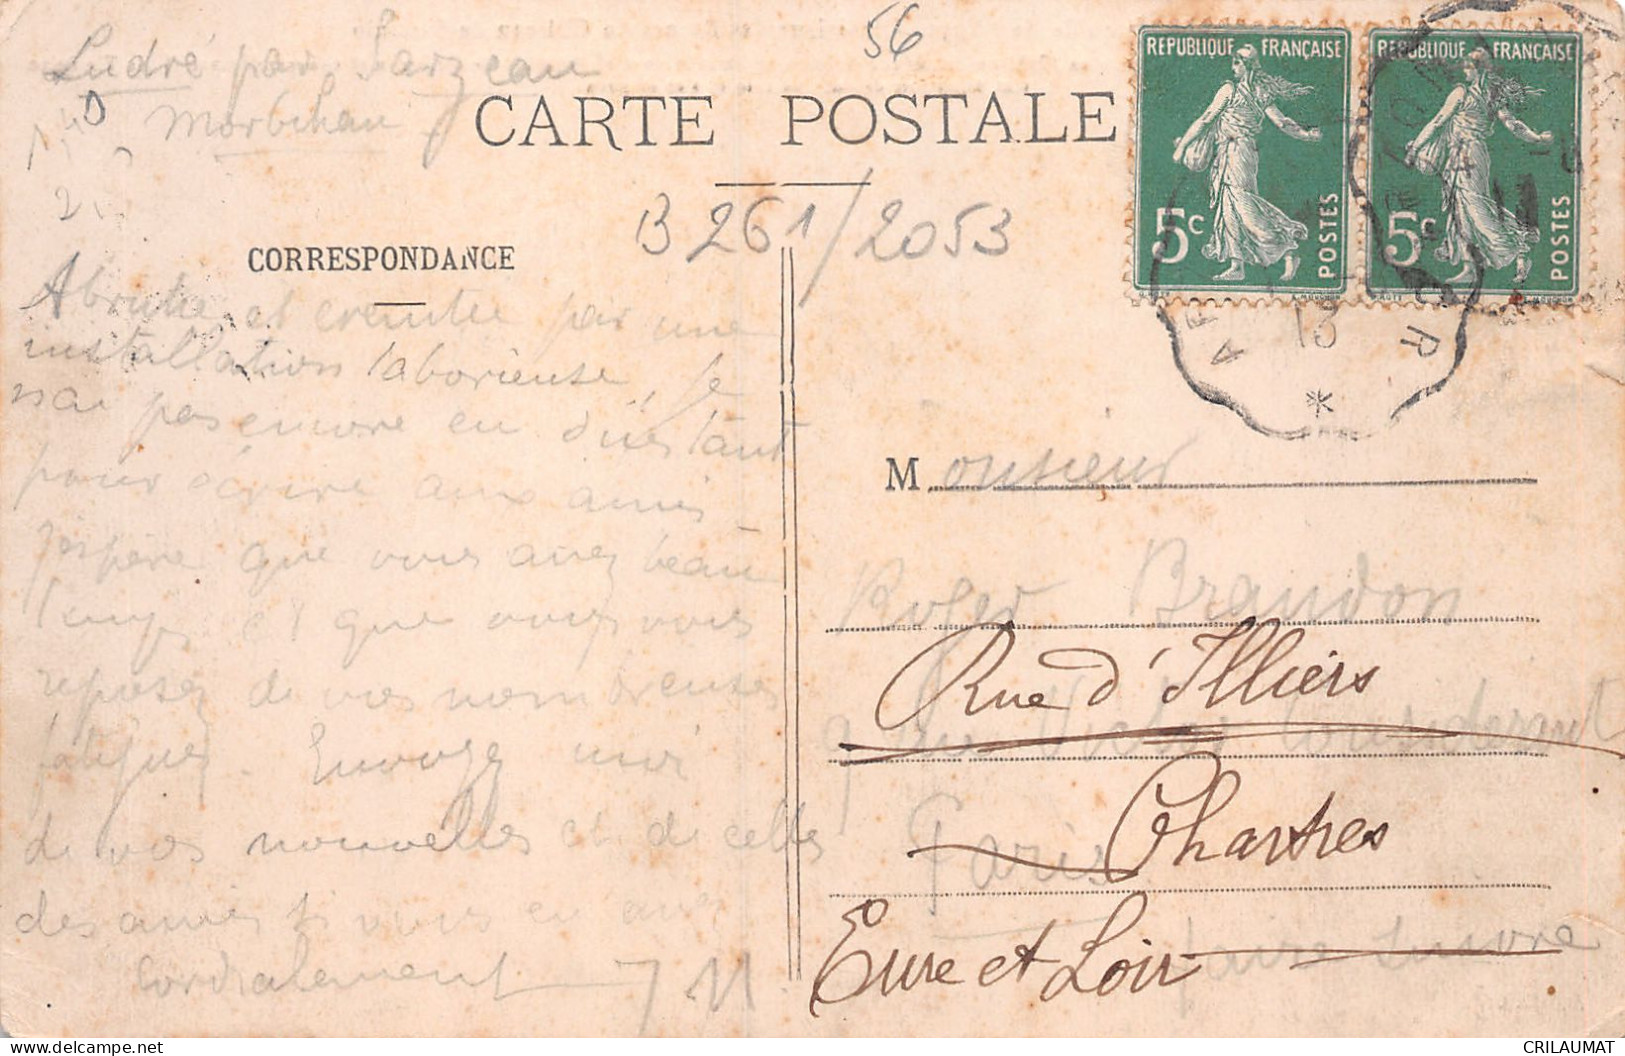 56
Ludré par Sarzeau
Morbihan
CARTE POSTALE
REPUBLIQUE FRANÇAISE
5c
POSTES
REPUBLIQUE FRANÇAISE
5c
POSTES
13
B 261/2053
CORRESPONDANCE
Abrutie et éreintée par une
installation laborieuse, je
n'ai pas encore eu d'instant
pour écrire aux amis
J'espère que vous avez beau
temps et que vous vous
reposez de vos nombreuses
fatigues. Envoyez moi
de vos nouvelles et de celles
des amis si vous en avez
Cordialement
Monsieur
Roger Brandon
Rue d'Illiers
9 rue Victor Considerant
Chartres
Paris
Eure et Loir
faire suivre
CRILAUMAT